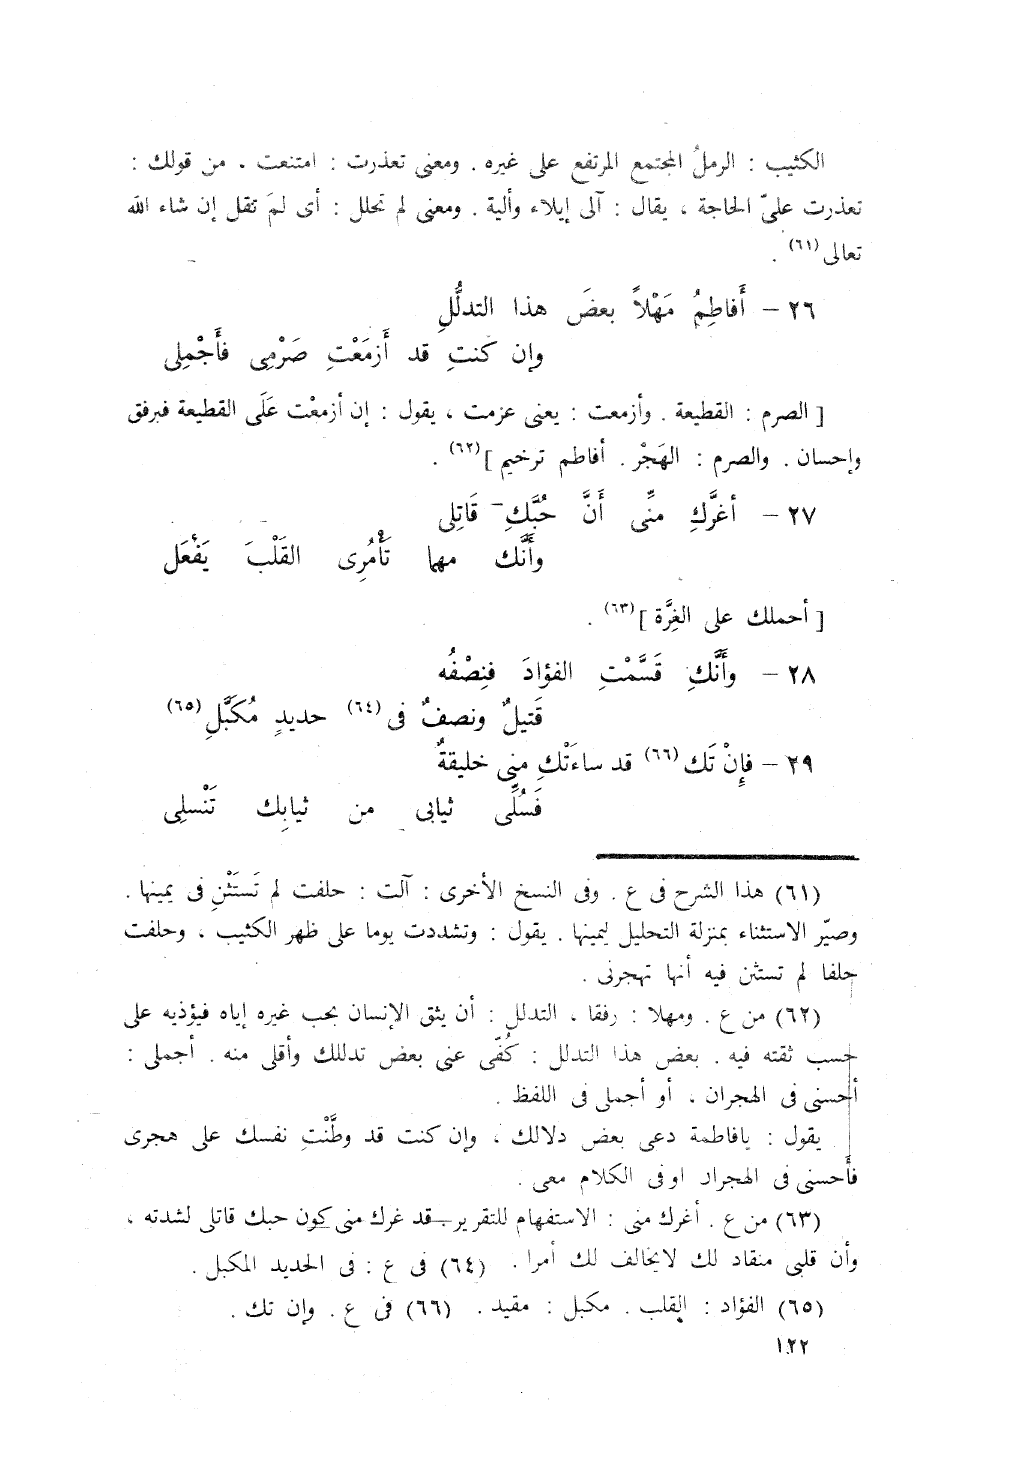 الكثيب : الرملُ المجتمع المرتفع على غيره . ومعنى تعذرت : امتنعت . من قولك :
تعذرت علىّ الحاجة ، يقال : آلى إيلاء وألية . ومعنى لم تحلل : أى لمَ تقل إن شاء الله
تعالى (٦١) .
٢٦ – أَفاطِمُ مَهْلاً بعضَ هذا التدلُّلِ
وإن كنتِ قد أَزمَعْتِ صَرْمِى فأَجْمِلى
[ الصرم : القطيعة . وأزمعت : يعنى عزمت ، يقول : إن أزمعْت عَلَى القطيعة فبرفق
وإحسان . والصرم : الهَجْر . أفاطم ترخيم ] (٦٢) .
٢٧ – أغرَّكِ منِّى أَنَّ حُبَّكِ قَاتِلى
وأَنَّك مهما تَأْمُرِى القَلْبَ يَفْعَل
[ أحملك على الغِرَّة ] (٦٣) .
٢٨ – وأَنَّكِ قَسَّمْتِ الفؤادَ فنِصْفُه
قَتيلٌ ونصفٌ فى (٦٤) حديدٍ مُكَبَّلِ (٦٥)
٢٩ – فإِنْ تَك (٦٦) قد ساءَتْكِ منى خليقةٌ
فَسُلِّى ثيابى من ثيابِك تَنْسلِى
(٦١) هذا الشرح فى ع . وفى النسخ الأخرى : آلت : حلفت لم تَستَثْنِ فى يمينها .
وصيّر الاستثناء بمنزلة التحليل ليمينها . يقول : وتشددت يوما على ظهر الكثيب ، وحلفت
حلفا لم تستثن فيه أنها تهجرنى .
(٦٢) من ع . ومهلا : رفقا ، التدلل : أن يثق الإنسان بحب غيره إياه فيؤذيه على
حسب ثقته فيه . بعض هذا التدلل : كُفّى عنى بعض تدللك وأقلى منه . أجملى :
أحسنى فى الهجران ، أو أجملى فى اللفظ .
يقول : يافاطمة دعى بعض دلالك ، وإن كنت قد وطَّنْتِ نفسك على هجرى
فأَحسنى فى الهجران اوفى الكلام معى .
(٦٣) من ع . أغرك منى : الاستفهام للتقرير – قد غرك منى كون حبك قاتلى لشدته ،
وأن قلبى منقاد لك لايخالف لك أمرا . (٦٤) فى ع : فى الحديد المكبل .
(٦٥) الفؤاد : القلب . مكبل : مقيد . (٦٦) فى ع . وإن تك .
١٢٢